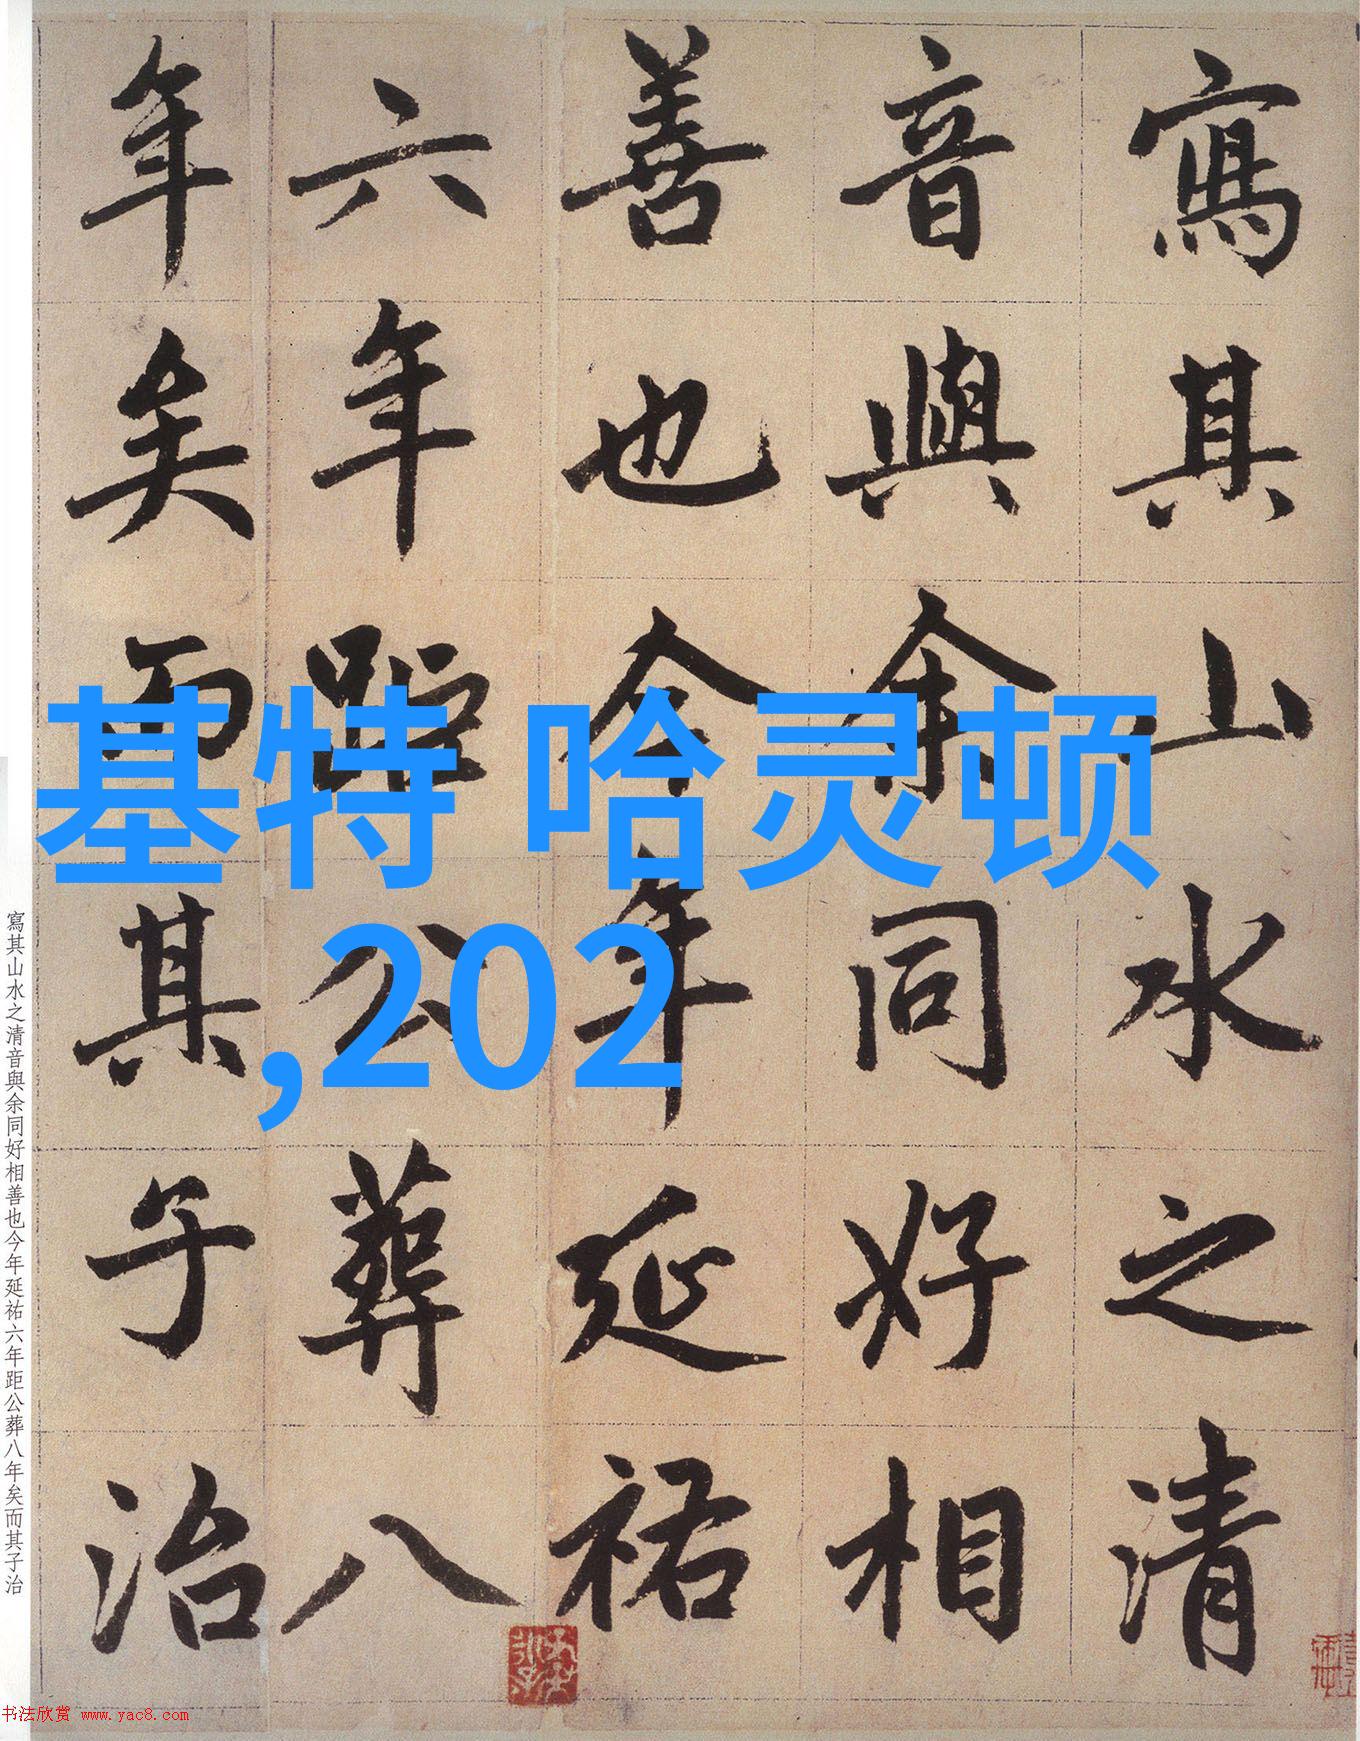 寫其山水之清
音與余同好相
善也今年延祐
六年距公葬八
年矣而其子治
基特 哈灵顿
,202
寫其山水之清音與余同好相善也今年延祐六年距公葬八年矣而其子治
书法欣赏 www.yac8.com